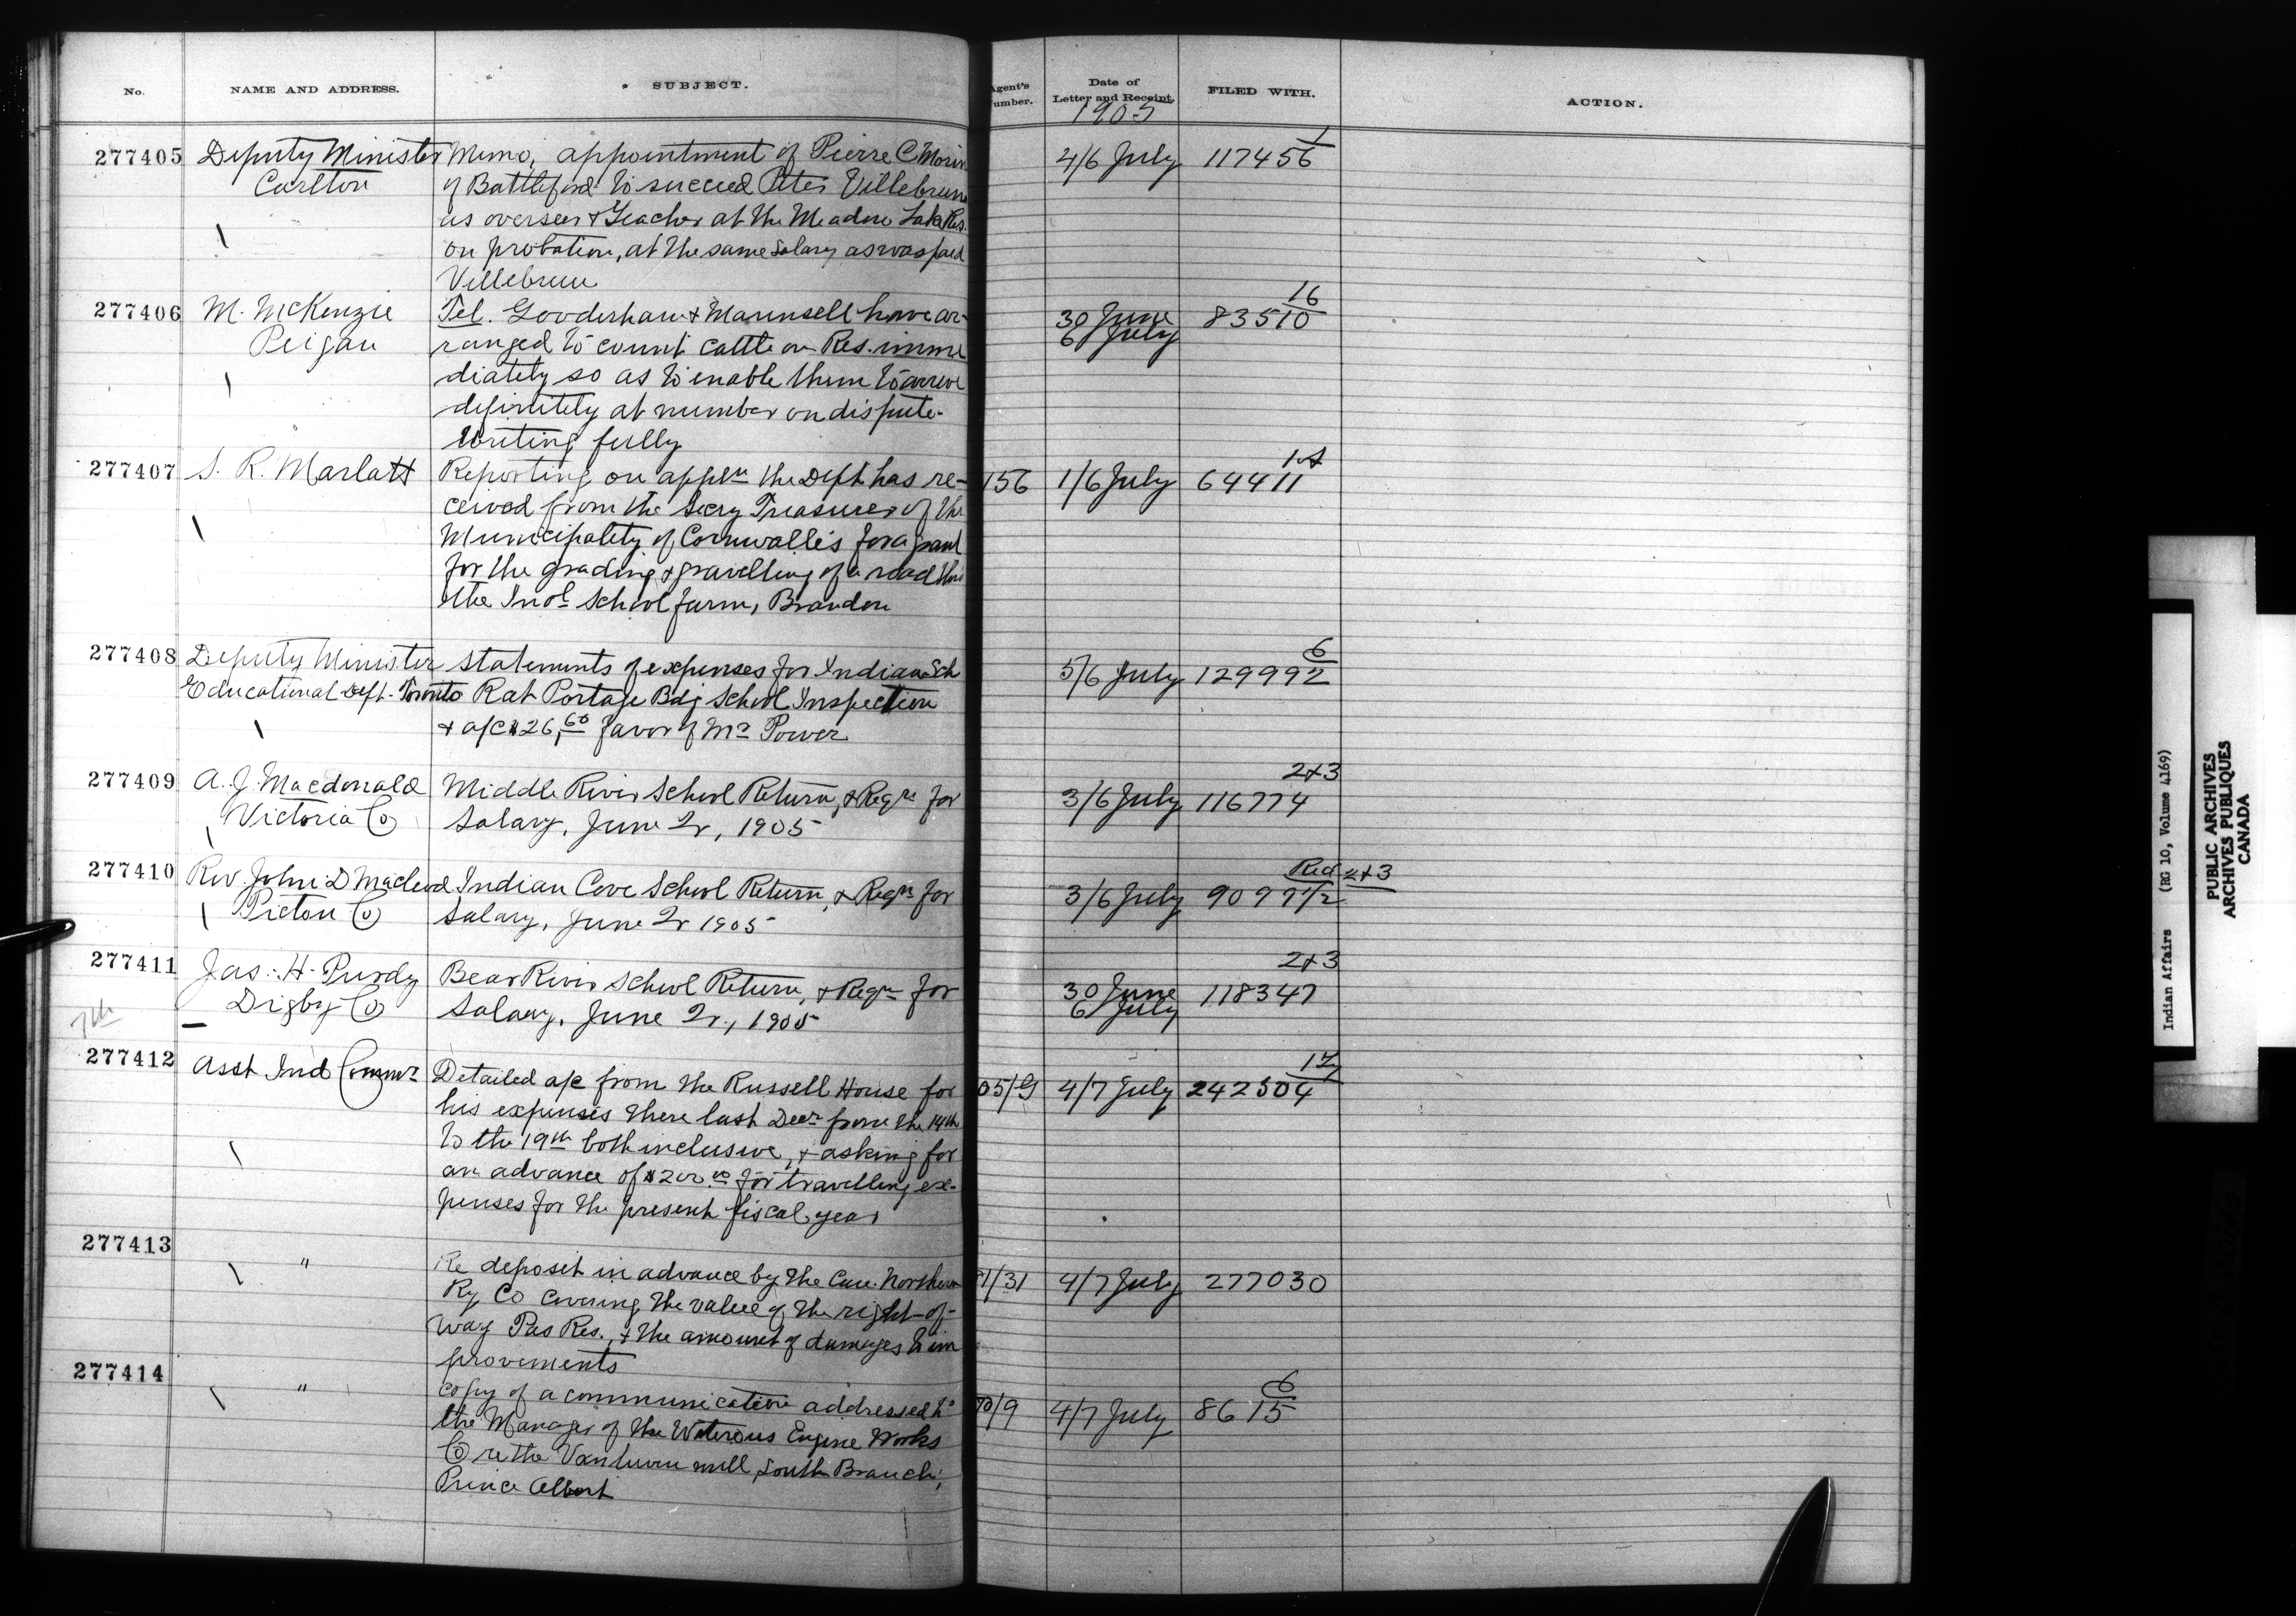 No. NAME AND ADDRESS. SUBJECT. Agent's Number. Date of Letter and Receipt. FILED WITH. ACTION.
1905
277405 Deputy Minister Memo, appointment of Pierre C. Morin 4/6 July 117456 1
Carlton of Battleford to succeed Peter Villebrun
as overseer & Teacher at the Meadow Lake Res.
on probation, at the same salary as was paid
Villebrun
277406 M. McKenzie Tel. Gooderham & Maunsell have ar- 30 June 83510 16
Peigan ranged to count cattle on Res. imme 6 July
diately so as to enable them to arrive
definitely at number on dispute.
Writing fully
277407 S. R. Marlatt Reporting on appln the Dept has re- 156 1/6 July 64411
ceived from the Secy Treasurer of the
Municipality of Cornwallis for a grant
for the grading & gravelling of a road thro
the Indl School farm, Brandon
277408 Deputy Minister Statements of expenses for Indian Sch 5/6 July 129992 6
Educational Dept. Toronto Rat Portage Bdg School Inspection
& a/c $26.60 favor of Mr Power
277409 A. J. Macdonald Middle River School Return, & Reqn for 3/6 July 116774 2+3
Victoria Co Salary, June Qr, 1905
277410 Rev John D Macleod Indian Cove School Return, & Reqn for 3/6 July 90971/2 Red 2+3
Pictou Co Salary, June Qr 1905
277411 Jas. H. Purdy Bear River School Return, & Reqn for 30 June 118347 2+3
Digby Co Salary, June Qr., 1905 6 July
7th
277412 Asst Ind Commr Detailed a/c from the Russell House for 05/G 4/7 July 242504 17
his expenses there last Decr from the 14th
to the 19th both inclusive, & asking for
an advance of $200.00 for travelling ex-
penses for the present fiscal year
277413 " Re deposit in advance by the Can. Northern 1/31 4/7 July 277030
Ry Co covering the value of the right-of-
way Pas Res., & the amount of damages to im
provements
277414 " Copy of a communication addressed to /9 4/7 July 8615 6
the Manager of the Waterous Engine Works
Co re the Vanluven mill, South Branch,
Prince Albert
Indian Affairs (RG 10, Volume 4169)
PUBLIC ARCHIVES
ARCHIVES PUBLIQUES
CANADA